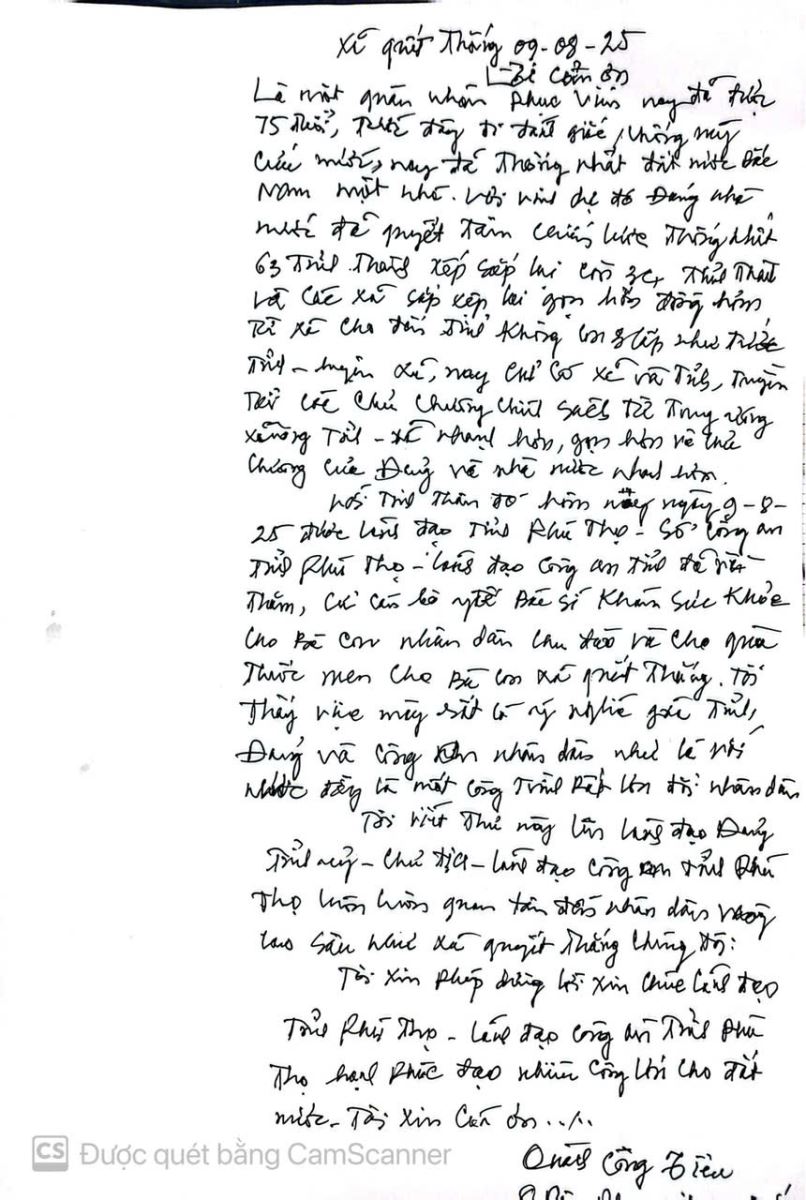 Xã quyết Thắng 09-08-25
Lời cảm ơn
Là một quân nhân phục viên nay đã được
75 tuổi, trước đây đi đánh giặc, chống mỹ
cứu nước, nay đã thống nhất đất nước Bắc
Nam một nhà. Với vinh dự đó Đảng nhà
nước đã quyết tâm chiến lược thống nhất
63 Tỉnh thành xếp sắp lại còn 34 Tỉnh thành
và các xã sắp xếp lại gọn hơn động hơn
Từ xã cho đến Tỉnh không còn 3 lớp như trước
Tỉnh - huyện xã, nay chỉ có xã và Tỉnh, truyền
các chủ chương chính sách từ trung ương
xuống Tỉnh - xã nhanh hơn, gọn hơn và chủ
chương của Đảng và nhà nước nhanh hơn.
Với tinh thần đó hôm nay ngày 9-8-
25 được lãnh đạo tỉnh Phú Thọ - Sở công an
Tỉnh Phú Thọ - lãnh đạo công an tỉnh đã về
thăm, cử cán bộ y tế Bác sĩ khám sức khỏe
cho Bà con nhân dân chu đáo và cho quà
thuốc men cho Bà con xã quyết thắng. Tôi
thấy việc này rất có ý nghĩa giữa Tỉnh,
Đảng và công an nhân dân như cá với
nước đây là một công trình rất lớn đối nhân dân
Tôi viết thư này lên lãnh đạo Đảng
Tỉnh ủy - chủ tịch - lãnh đạo công an tỉnh Phú
Thọ luôn luôn quan tâm đến nhân dân vùng
sâu như xã quyết thắng chúng tôi:
Tôi xin phép dừng lời xin chúc lãnh đạo
Tỉnh Phú Thọ - lãnh đạo công an Tỉnh Phú
Thọ hạnh phúc đạo nhiều công lớn cho đất
nước - Tôi xin cảm ơn ../.
Công
CS Được quét bằng CamScanner